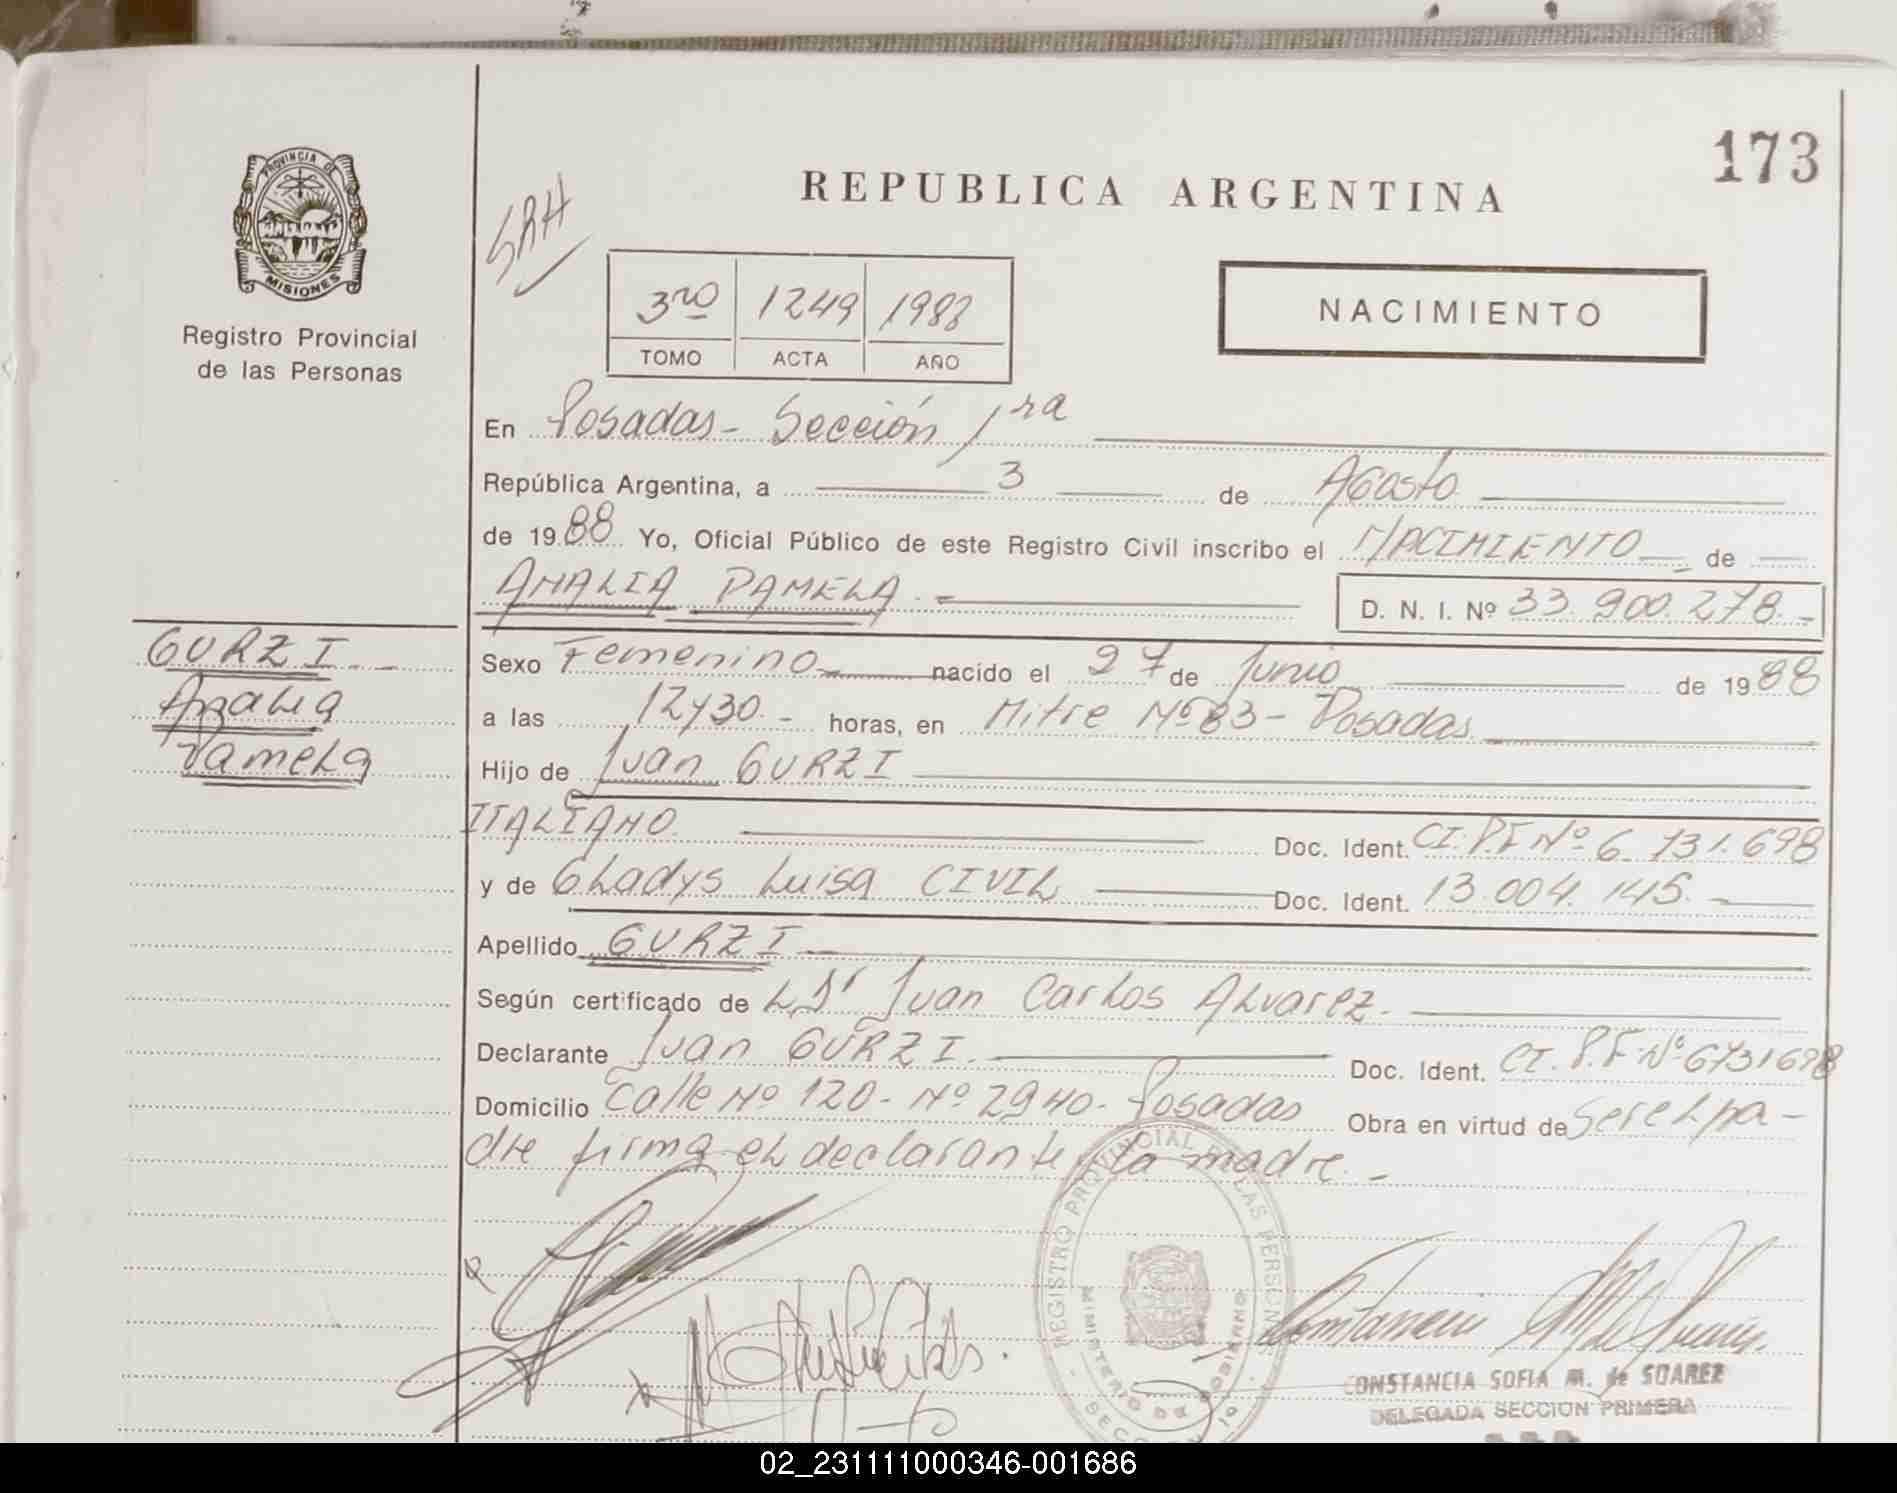 173
PROVINCIA DE
MISIONES
Registro Provincial
de las Personas
SRH
REPUBLICA ARGENTINA
3ro 1249 1988
TOMO ACTA AÑO
NACIMIENTO
En Posadas - Sección 1ra
República Argentina, a 3 de Agosto
de 1988 Yo, Oficial Público de este Registro Civil inscribo el NACIMIENTO de
AMALIA PAMELA.- D. N. I. Nº 33.900.278.-
GURZI
Amalia
Pamela
Sexo Femenino nacido el 27 de Junio de 1988
a las 12y30.- horas, en Mitre Nº 83 - Posadas
Hijo de Juan GURZI
ITALIANO Doc. Ident. CI.P.F Nº 6.731.698
y de Gladys Luisa CIVIL Doc. Ident. 13.004.145.-
Apellido GURZI
Según certificado de Juan Carlos Alvarez.
Declarante Juan GURZI. Doc. Ident. CI.P.F. Nº 6731698
Domicilio Calle Nº 120 - Nº 2940 - Posadas Obra en virtud de Ser el pa-
dre firma el declarante y la madre.-
REGISTRO PROVINCIAL DE LAS PERSONAS
MINISTERIO DE GOBIERNO
CONSTANCIA SOFIA M. de SUAREZ
DELEGADA SECCION PRIMERA
02_231111000346-001686